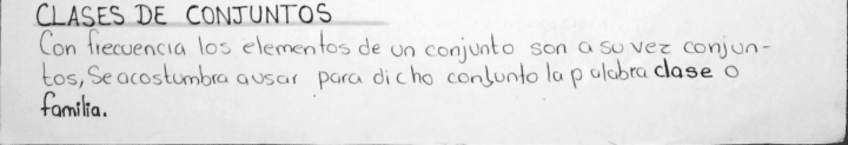 CLASES DE CONJUNTOS
Con frecuencia los elementos de un conjunto son a su vez conjun-
tos, Se acostumbra a usar para dicho conjunto la palabra clase o
familia.